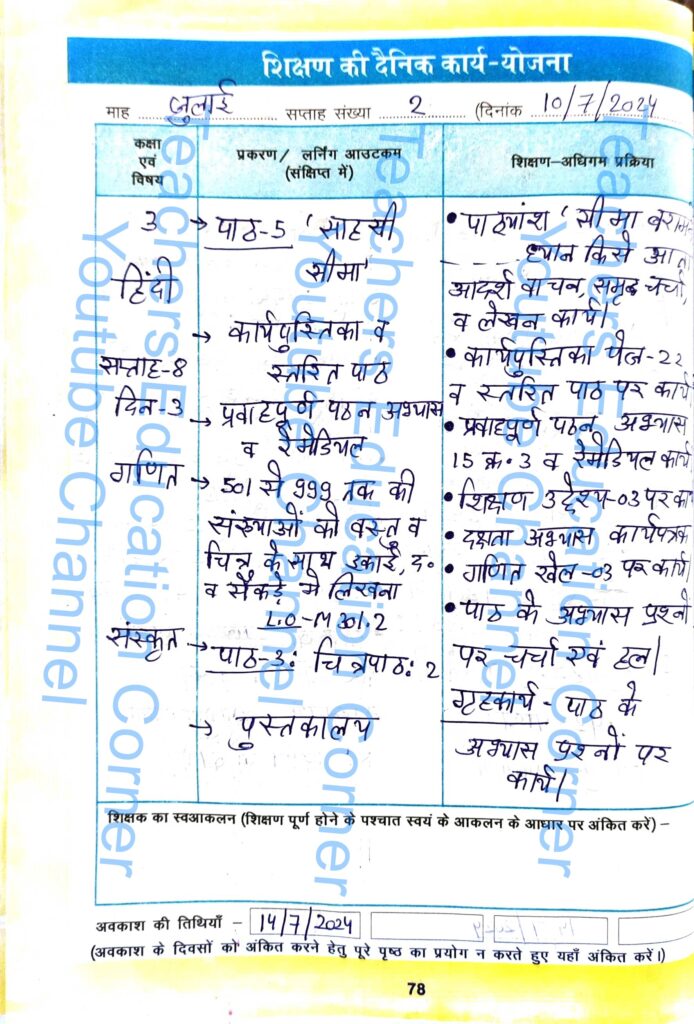 शिक्षण की दैनिक कार्य-योजना
माह जुलाई सप्ताह संख्या 2 (दिनांक 10/7/2024
कक्षा एवं विषय
प्रकरण/ लर्निंग आउटकम (संक्षिप्त में)
शिक्षण-अधिगम प्रक्रिया
3
हिंदी
सप्ताह-8
दिन-3
गणित
संस्कृत
→ पाठ-5 'साहसी
सीमा'
→ कार्यपुस्तिका व
स्तरित पाठ
→ प्रवाहपूर्ण पठन अभ्यास
व रेमेडियल
→ 501 से 999 तक की
संख्याओं को वस्तु व
चित्र के साथ इकाई, द.
व सैकड़े में लिखना
L.O-M301.2
→ पाठ-3: चित्रपाठ: 2
→ पुस्तकालय
• पाठ्यांश 'सीमा
ध्यान किसे आता
आदर्श वाचन, समूह चर्चा,
व लेखन कार्य।
• कार्यपुस्तिका पेज-22
व स्तरित पाठ पर कार्य
• प्रवाहपूर्ण पठन अभ्यास
15 क्र. 3 व रेमेडियल कार्य
• शिक्षण उद्देश्य-03 पर का
• दक्षता अभ्यास कार्यपत्रक
• गणित खेल-03 पर कार्य।
• पाठ के अभ्यास प्रश्नों
पर चर्चा एवं हल।
गृहकार्य - पाठ के
अभ्यास प्रश्नों पर
कार्य।
शिक्षक का स्वआकलन (शिक्षण पूर्ण होने के पश्चात स्वयं के आकलन के आधार पर अंकित करें) –
अवकाश की तिथियाँ – 14/7/2024
(अवकाश के दिवसों को अंकित करने हेतु पूरे पृष्ठ का प्रयोग न करते हुए यहाँ अंकित करें।)
78
Teachers Education Corner
Youtube Channel
Teachers Education Corner
Youtube Channel
Teachers Education Corner
Youtube Channel